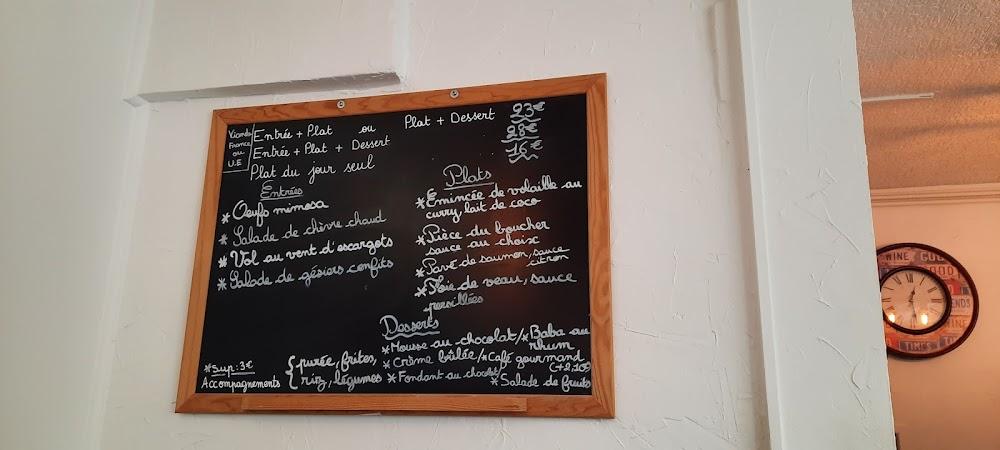 Viande
France
ou
U.E
Entrée + Plat ou Plat + Dessert 23€
Entrée + Plat + Dessert 28€
Plat du jour seul 16€
Entrées
* Oeufs mimosa
* Salade de chèvre chaud
* Vol au vent d'escargots
* Salade de gésiers confits
Plats
* Émincée de volaille au
curry lait de coco
* Pièce du boucher
sauce au choix
* Pavé de saumon, sauce
citron
* Foie de veau, sauce
persillées
Desserts
* Mousse au chocolat / * Baba au
rhum
* Crème brûlée / * Café gourmand
* Fondant au chocolat
* Salade de fruits
* Sup: 3€
Accompagnements { purée, frites,
riz, légumes
WINE GOOD
GOOD
WINE
TIMES